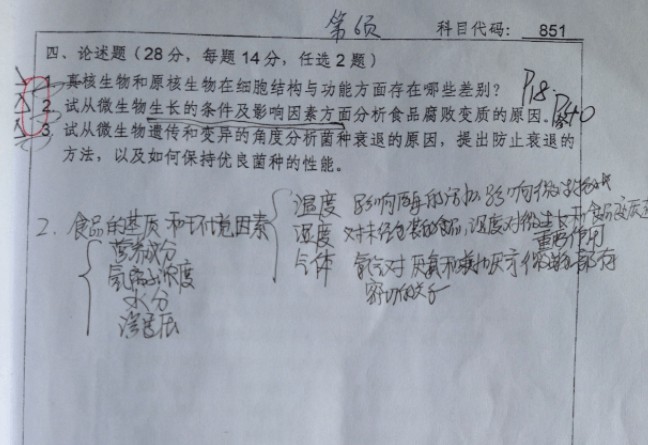 第6页 科目代码: 851
四、论述题（28分，每题14分，任选2题）
1. 真核生物和原核生物在细胞结构与功能方面存在哪些差别? P18.
2. 试从微生物生长的条件及影响因素方面分析食品腐败变质的原因。
3. 试从微生物遗传和变异的角度分析菌种衰退的原因，提出防止衰退的
方法，以及如何保持优良菌种的性能。
2. 食品的基质和环境因素
营养成分
氢离子浓度
水分
渗透压
温度 影响酶的活力,影响微生物
湿度 对未经包装的食品,湿度对微生物生长和食品变质起
重要作用
气体 氧气对厌氧和兼性厌氧微生物都有
密切的关系